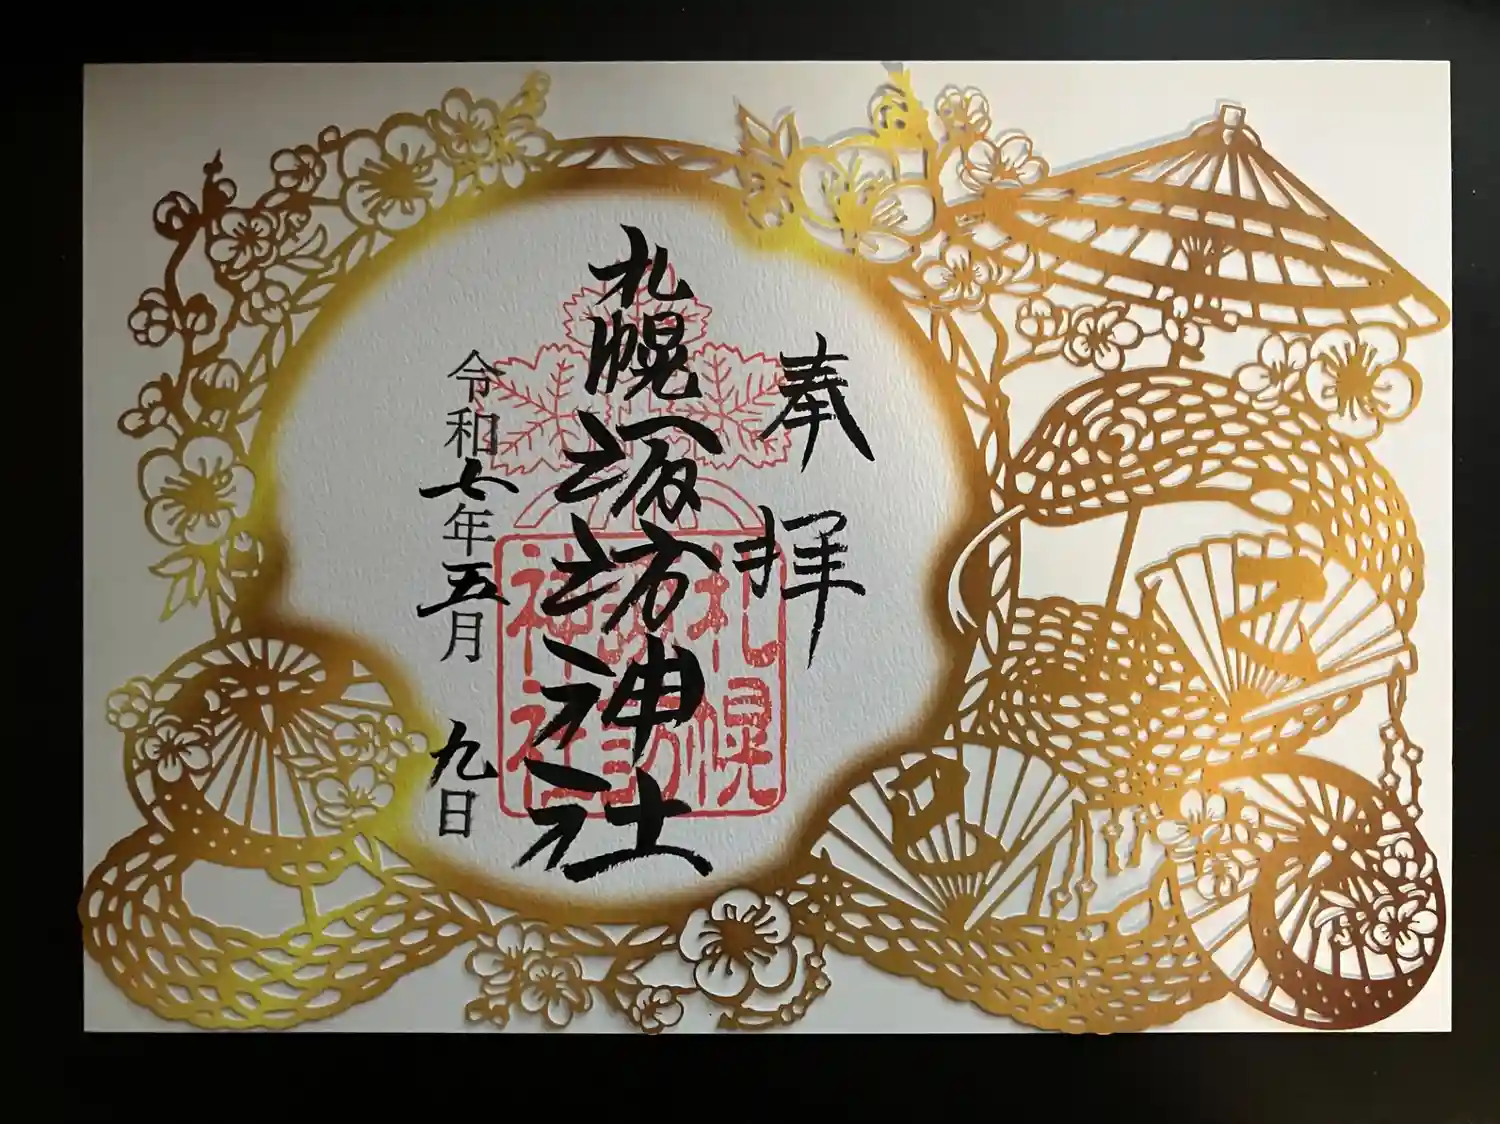 乙
巳
奉拝
札幌諏訪神社
札幌
諏訪
神社
令和七年五月九日